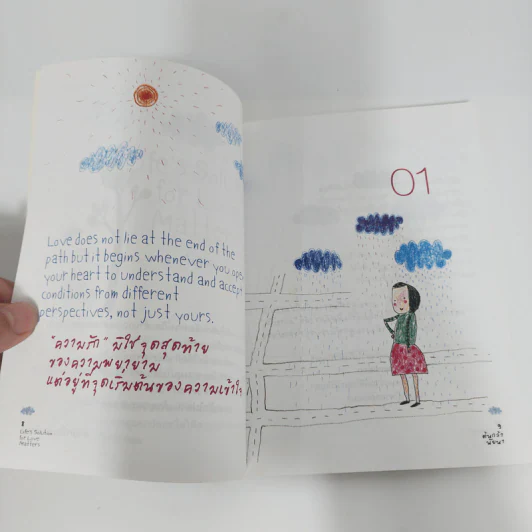 Love does not lie at the end of the
path but it begins whenever you open
your heart to understand and accept
conditions from different
perspectives, not just yours.
"ความรัก" มิใช่จุดสุดท้าย
ของความพยายาม
แต่อยู่ที่จุดเริ่มต้นของความเข้าใจ
8
for Love
Matters
01
9